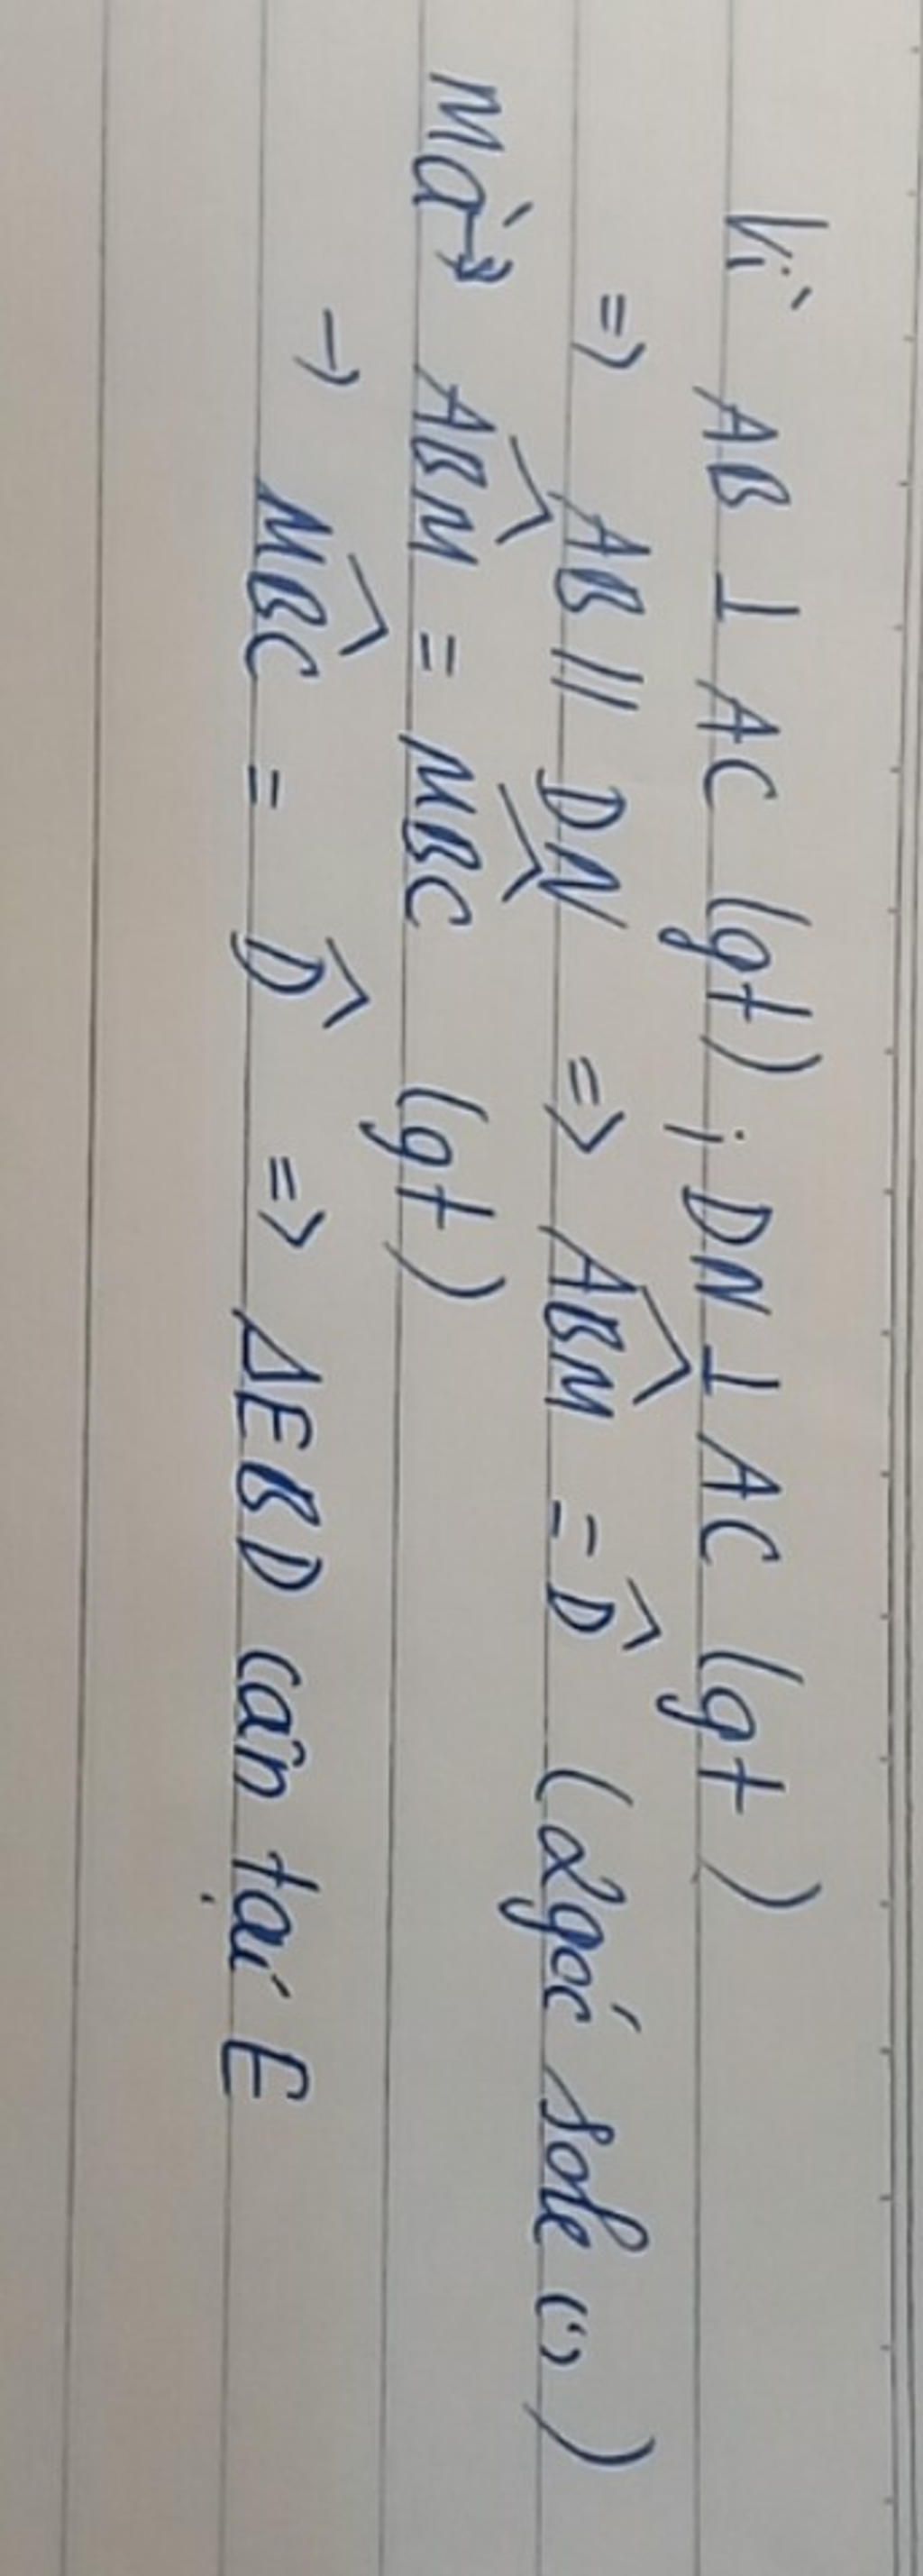 Vì AB ⊥ AC (gt) ; DN ⊥ AC (gt)
=> AB // DN => \widehat{ABM} = \widehat{D} (2 góc sole (')
Mà \widehat{ABM} = \widehat{MBC} (gt)
→ \widehat{MBC} = \widehat{D} => ΔEBD cân tại E